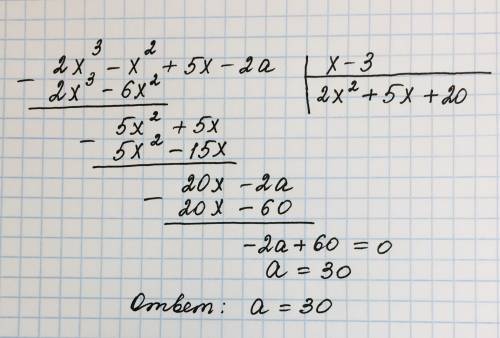 2x³ - x² + 5x - 2a | x - 3
- 2x³ - 6x² | 2x² + 5x + 20
5x² + 5x
- 5x² - 15x
20x - 2a
- 20x - 60
-2a + 60 = 0
a = 30
Ответ: a = 30